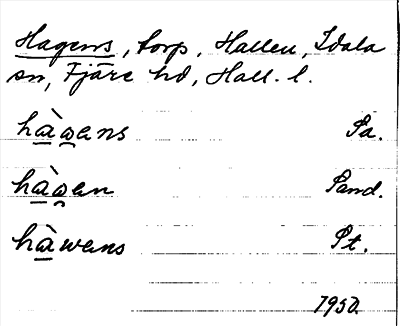 Hagens, torp, Hallen, Idala
sn, Fjäre hd, Hall. l.
hàwens Pa.
hàwen Sand.
hàwens Pt.
1950.